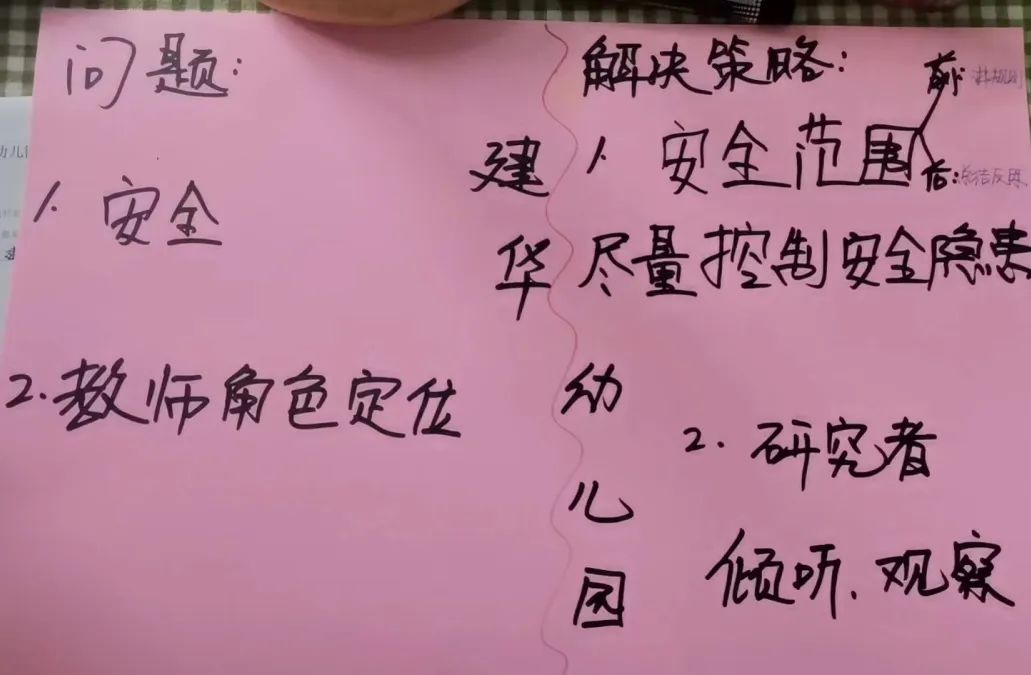 问题:
1、安全
2.教师角色定位
建华幼儿园
解决策略:
1、安全范围
前:讲规则
后:总结反思
尽量控制安全隐患
2.研究者
倾听、观察
幼儿